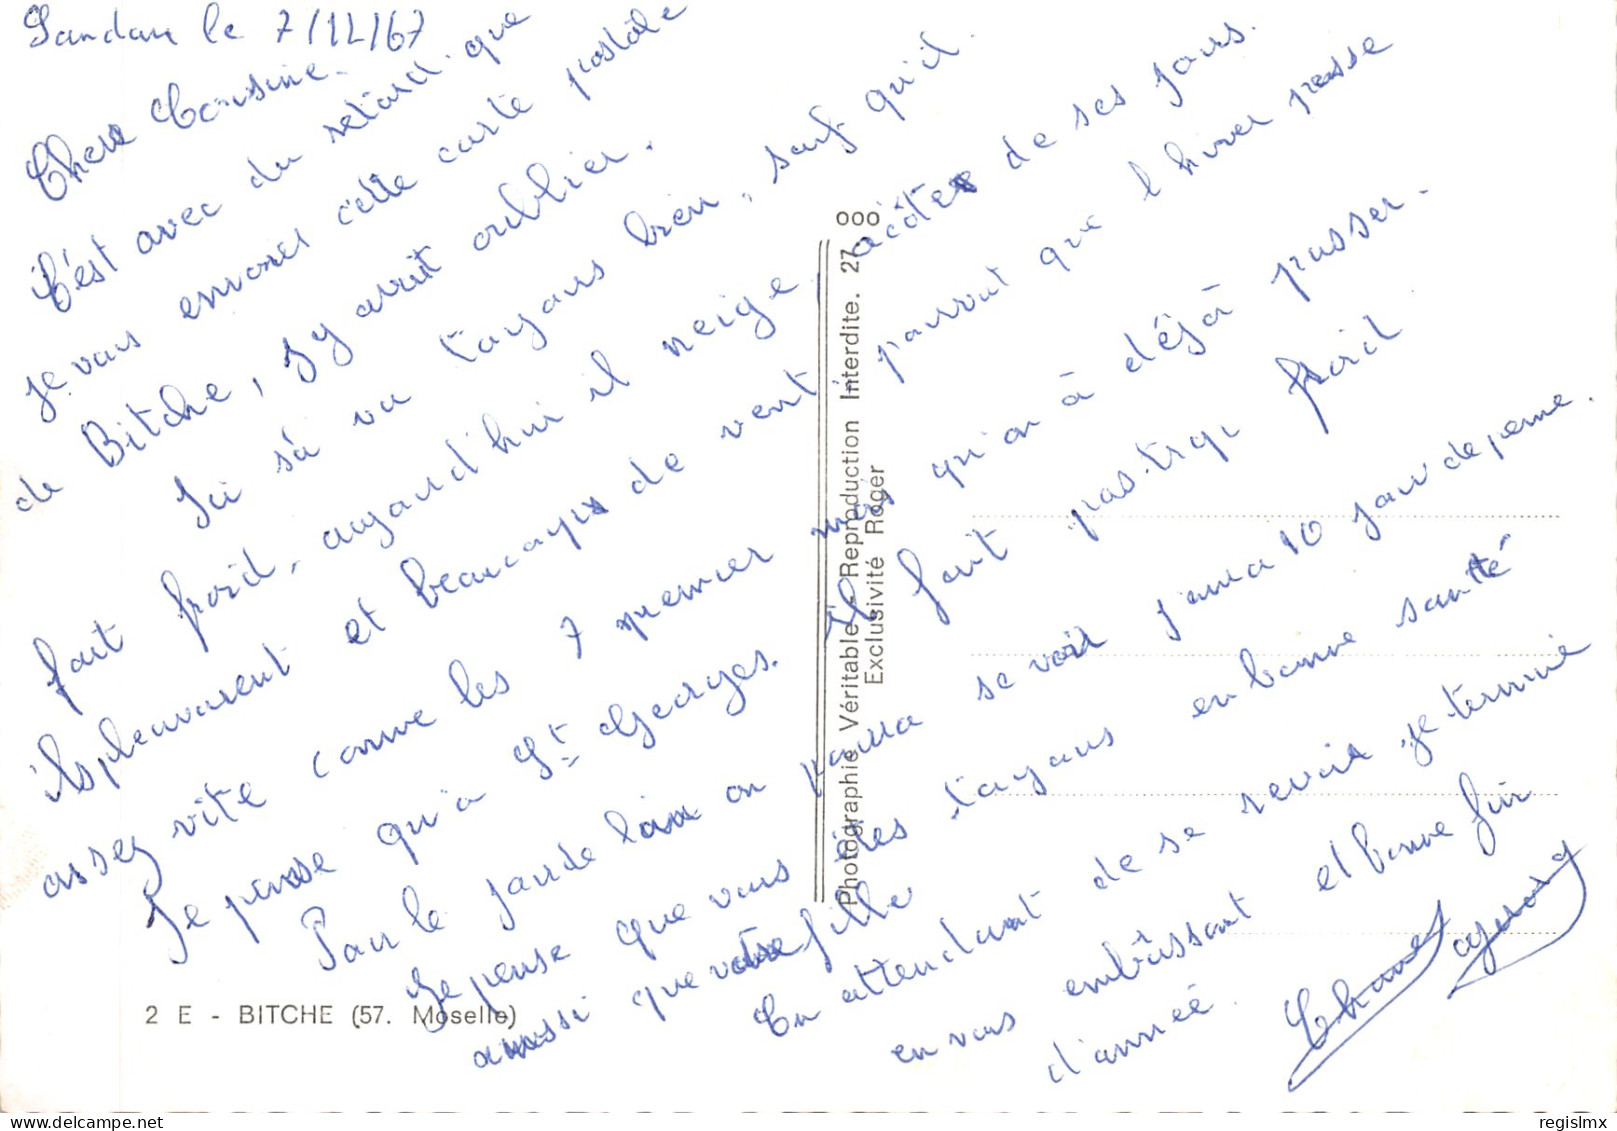 Landau le 7/12/67
Chere Cousine.
C'est avec du retard. que
je vous envoies cette carte postale
de Bitche, s'y avait oublier.
Ici sà va toujours bien, sauf qu'il
fait froid, aujourd'hui il neige, acôtes de ses jours.
ils pleuvarent et beaucoups de vent, pourvut que l'hiver passe
assez vite comme les 7 premier mois qu'on à déjà passer.
Je pense qu'a St Georges. il fait pas trop froid
Pour le jour de l'an on pourra se voir j'aurai 10 jour de perme.
Je pense que vous êtes toujours en bonne santé
aussi que votre fille
En attendant de se revoir je termine
en vous embrâssant et bonne fin
d'année.
2 E - BITCHE (57. Moselle)
Photographie Véritable - Reproduction Interdite. 27 000
Exclusivité Roger
regislmx